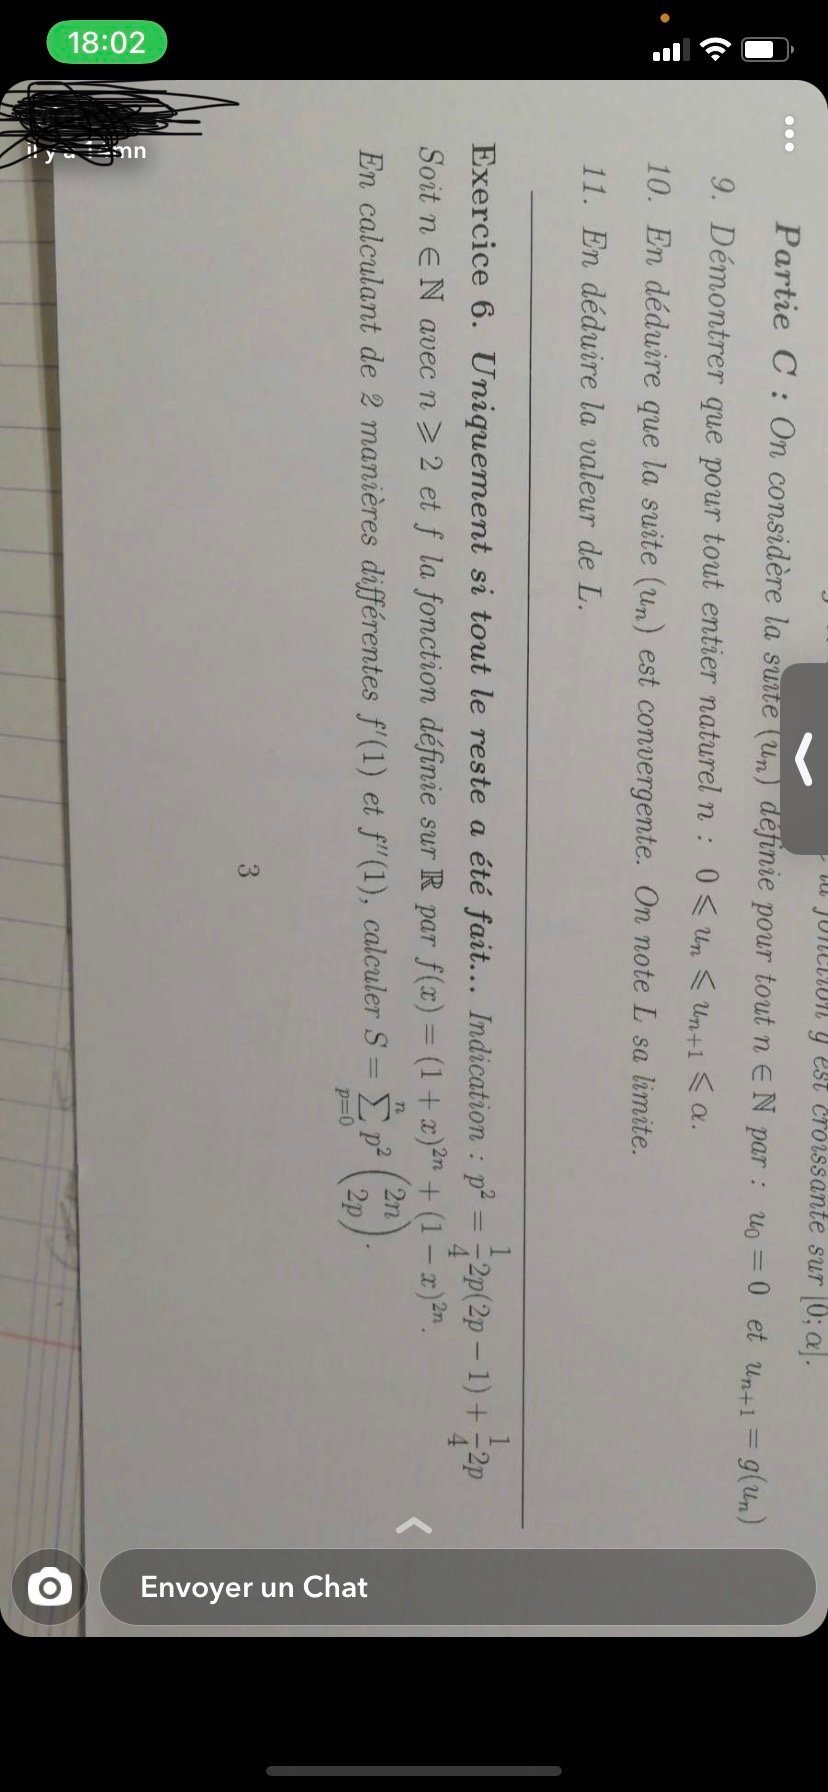 18:02
mn
la fonction g est croissante sur [0; α].
Partie C : On considère la suite (uₙ) définie pour tout n ∈ ℕ par : u₀ = 0 et uₙ₊₁ = g(uₙ)
9. Démontrer que pour tout entier naturel n : 0 ⩽ uₙ ⩽ uₙ₊₁ ⩽ α.
10. En déduire que la suite (uₙ) est convergente. On note L sa limite.
11. En déduire la valeur de L.
Exercice 6. Uniquement si tout le reste a été fait... Indication : p² = 1/4 2p(2p − 1) + 1/4 2p
Soit n ∈ ℕ avec n ⩾ 2 et f la fonction définie sur ℝ par f(x) = (1 + x)²ⁿ + (1 − x)²ⁿ.
En calculant de 2 manières différentes f′(1) et f″(1), calculer S = ∑ₚ₌₀ⁿ p² (2n 2p).
3
Envoyer un Chat